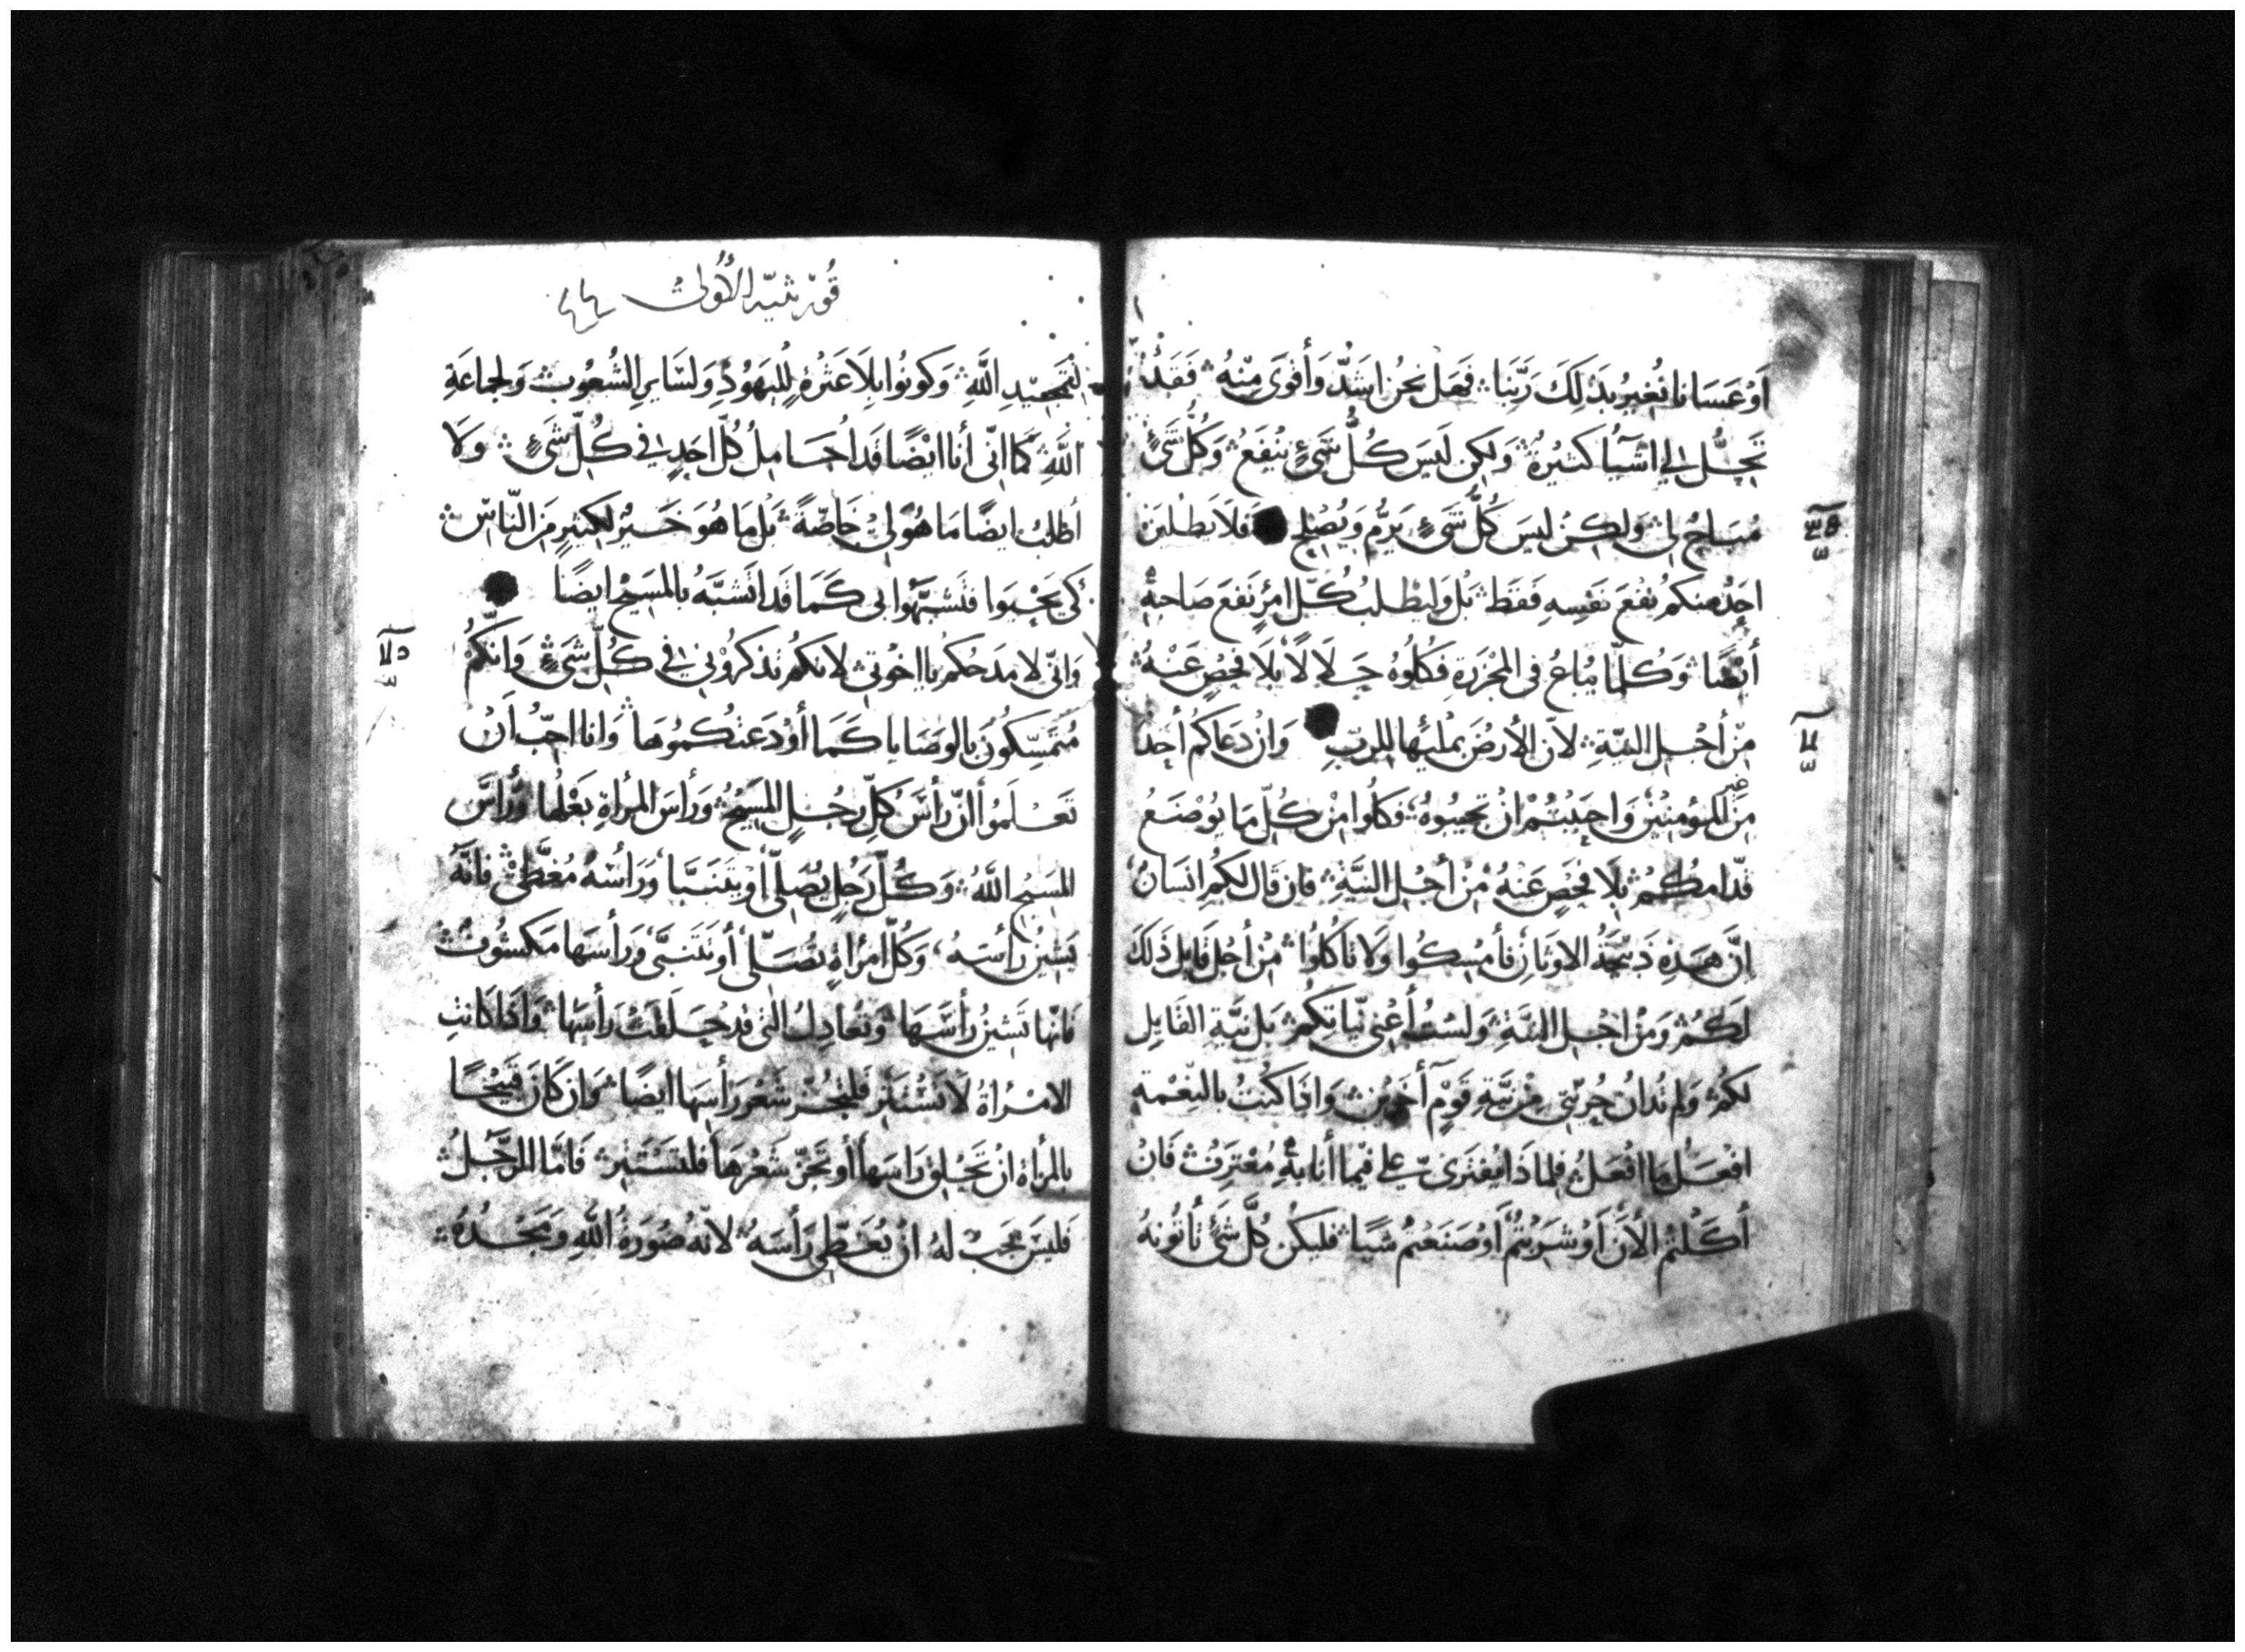 اَوْ عَسَانا نُغِيرُ بذلِكَ رَبَّنا ۞ فَهَل نحنُ اشَدُّ وَأَقوَى مِنْهُ ۞ فَقَدْ
تَحِلُّ لي اشيَآءُ كثيرةٌ ۞ وَلكِن لَيسَ كُلُّ شَيءٍ يَنْفَعُ ۞ وَكُلُّ شَيءٍ
مُبَاحٌ لي ۞ وَلكِنْ ليسَ كُلُّ شَيءٍ يَرُمُّ وَيُصْلِح فَلَا يَطْلُبَنَّ
احَدٌ منكم نَفْعَ نَفْسِهِ فَقَط ۞ بَلْ وَليَطْلُب كُلُّ امرِئٍ نَفعَ صَاحبهِ
أيْضًا ۞ وَكُلَّمَا يُبَاعُ في المَجْزَرَةِ فَكُلُوهُ حَلَالًا بِلَا فَحْصٍ عَنْهُ ۞
مِنْ أجْلِ النيّةِ ۞ لانّ الأرضَ بمَليِهَا للربِّ وَانْ دَعَاكم أحدٌ
مِنَ غير المؤمنِيْنَ وَاحبَبْتُمْ انْ تجِيبُوهُ ۞ فَكُلُوا مِنْ كُلِّ مَا يُوْضَعُ
قدّامكُمْ ۞ بِلَا فَحْصٍ عَنْهُ مِنْ أجْلِ النيَّةِ ۞ فان قَال لكُم انسَانٌ
انَّ هَذِهِ ذَبِيْحَةُ الاوثَانِ فأمْسِكُوا وَلا تأكُلُوا ۞ مِنْ أجْلِ قَايِل ذَلكَ
لَكُمْ ۞ وَمِنْ اجْلِ النيَّةِ ۞ وَلَسْتُ أعْنِي نيّاتِكُم ۞ بَل نيَّةِ القَايِلِ
لكُمْ ۞ وَلِم تُدانُ حُرّيّتي مِنْ نيَّةِ قَوْمٍ آخَرِيْنَ ۞ وَاذَا كُنْتُ بالنِّعْمةِ
افعَل مَا افْعَلُ ۞ فلِماذَا يُفتَرَى عَليّ فيْما أنا بهِ مُعْتَرِفٌ ۞ فَانْ
أَكَلْتُمُ الأنَ أوْ شَرِبْتُمْ أوْ صَنَعْتُم شَيًا ۞ فَليكُنْ كُلُّ شَيءٍ تأتُونهُ
قُورنثيّه الأولى ٤٤
لتَمجيدِ اللَّهِ ۞ وَكونُوا بِلَا عَثْرةٍ لِليَهُوْدِ وَلسَايرِ الشُعُوبِ ۞ وَلجماعَةِ
اللَّهِ ۞ كَمَا انّي أنا ايْضًا قَد احَامِلُ كُلَّ احَدٍ في كُلِّ شَيءٍ ۞ وَلَا
أطلبُ ايضًا مَا هُوَ لِيْ خَاصّةً ۞ بَلْ مَا هُوَ خَيْرٌ لكثيرٍ مِنَ النَّاسِ ۞
كَي يَحْيَوا فتَشَبَّهُوا بي كَمَا قَد اتَشَبَّهُ بالمسِيْحِ ايضًا
وَانّي لامدَحُكم يا اخوَتي ۞ لانكُم تذكرُوْنِي في كُلِّ شَيءٍ ۞ وَانّكُمْ
مُتَمسِّكُونَ بالوصَايا كَمَا أوْدَعتُكُموُهَا ۞ وَانا احِبُّ اَنْ
تَعْلَمُوا أنّ رَأسَ كُلِّ رجُلٍ المسِيْحُ ۞ وَرَأسَ المرأةِ بَعْلُها ۞ وَرَأسَ
المسيْح اللَّهُ ۞ وَكُلُّ رَجُلٍ يُصَلِّي أوْ يتَنَبَّا وَرَأسُهُ مُغَطَّى ۞ فانّهُ
يَشِيْنُ رَأسَهُ ۞ وَكُلُّ امْرأةٍ تُصَلّي أو تَتَنبّى وَرَأسَها مَكشُوفٌ ۞
فانّها تَشِيْنُ رأسَهَا ۞ وَتُعَادِلُ التي قدْ حَلَقَتْ رَأسَهَا ۞ وَاذَا كَانتِ
الامْرَاةُ لَا تَسْتَتِر فَلتَجُزّ شَعْرَ رَأسِهَا ايضًا ۞ وَان كَانَ قَبِيْحًا
بالمرْأةِ انْ تَحْلِقَ رَاسَهَا أو تَجُزّ شَعْرهَا فَلتسْتَتِر ۞ فَامّا الرَّجُلُ ۞
فَليسَ يجبُ لهُ انْ يُغَطِّي رَأسَهُ ۞ لانّهُ صُوْرَةُ اللَّهِ وَمَجْدُهُ ۞